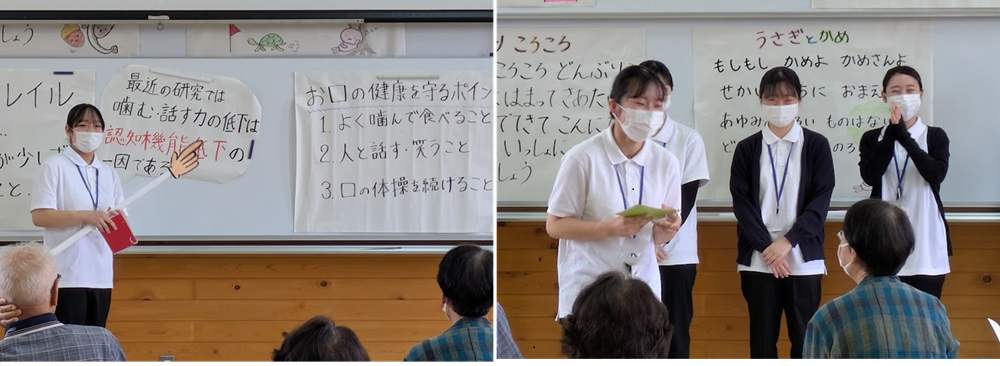 しょう
レイル
が少しず
こと。
最近の研究では
噛む・話す力の低下は
認知機能低下の
一因である
お口の健康を守るポイン
1. よく噛んで食べること
2. 人と話す・笑うこと
3. 口の体操を続けること
り ころころ
ころころ どんぶり
にはまって さあた
でてきて こんに
いっしょに
しょう
うさぎとかめ
もしもし かめよ かめさんよ
せかい うちに おまえ
あゆみ ろい ものはな
のろ